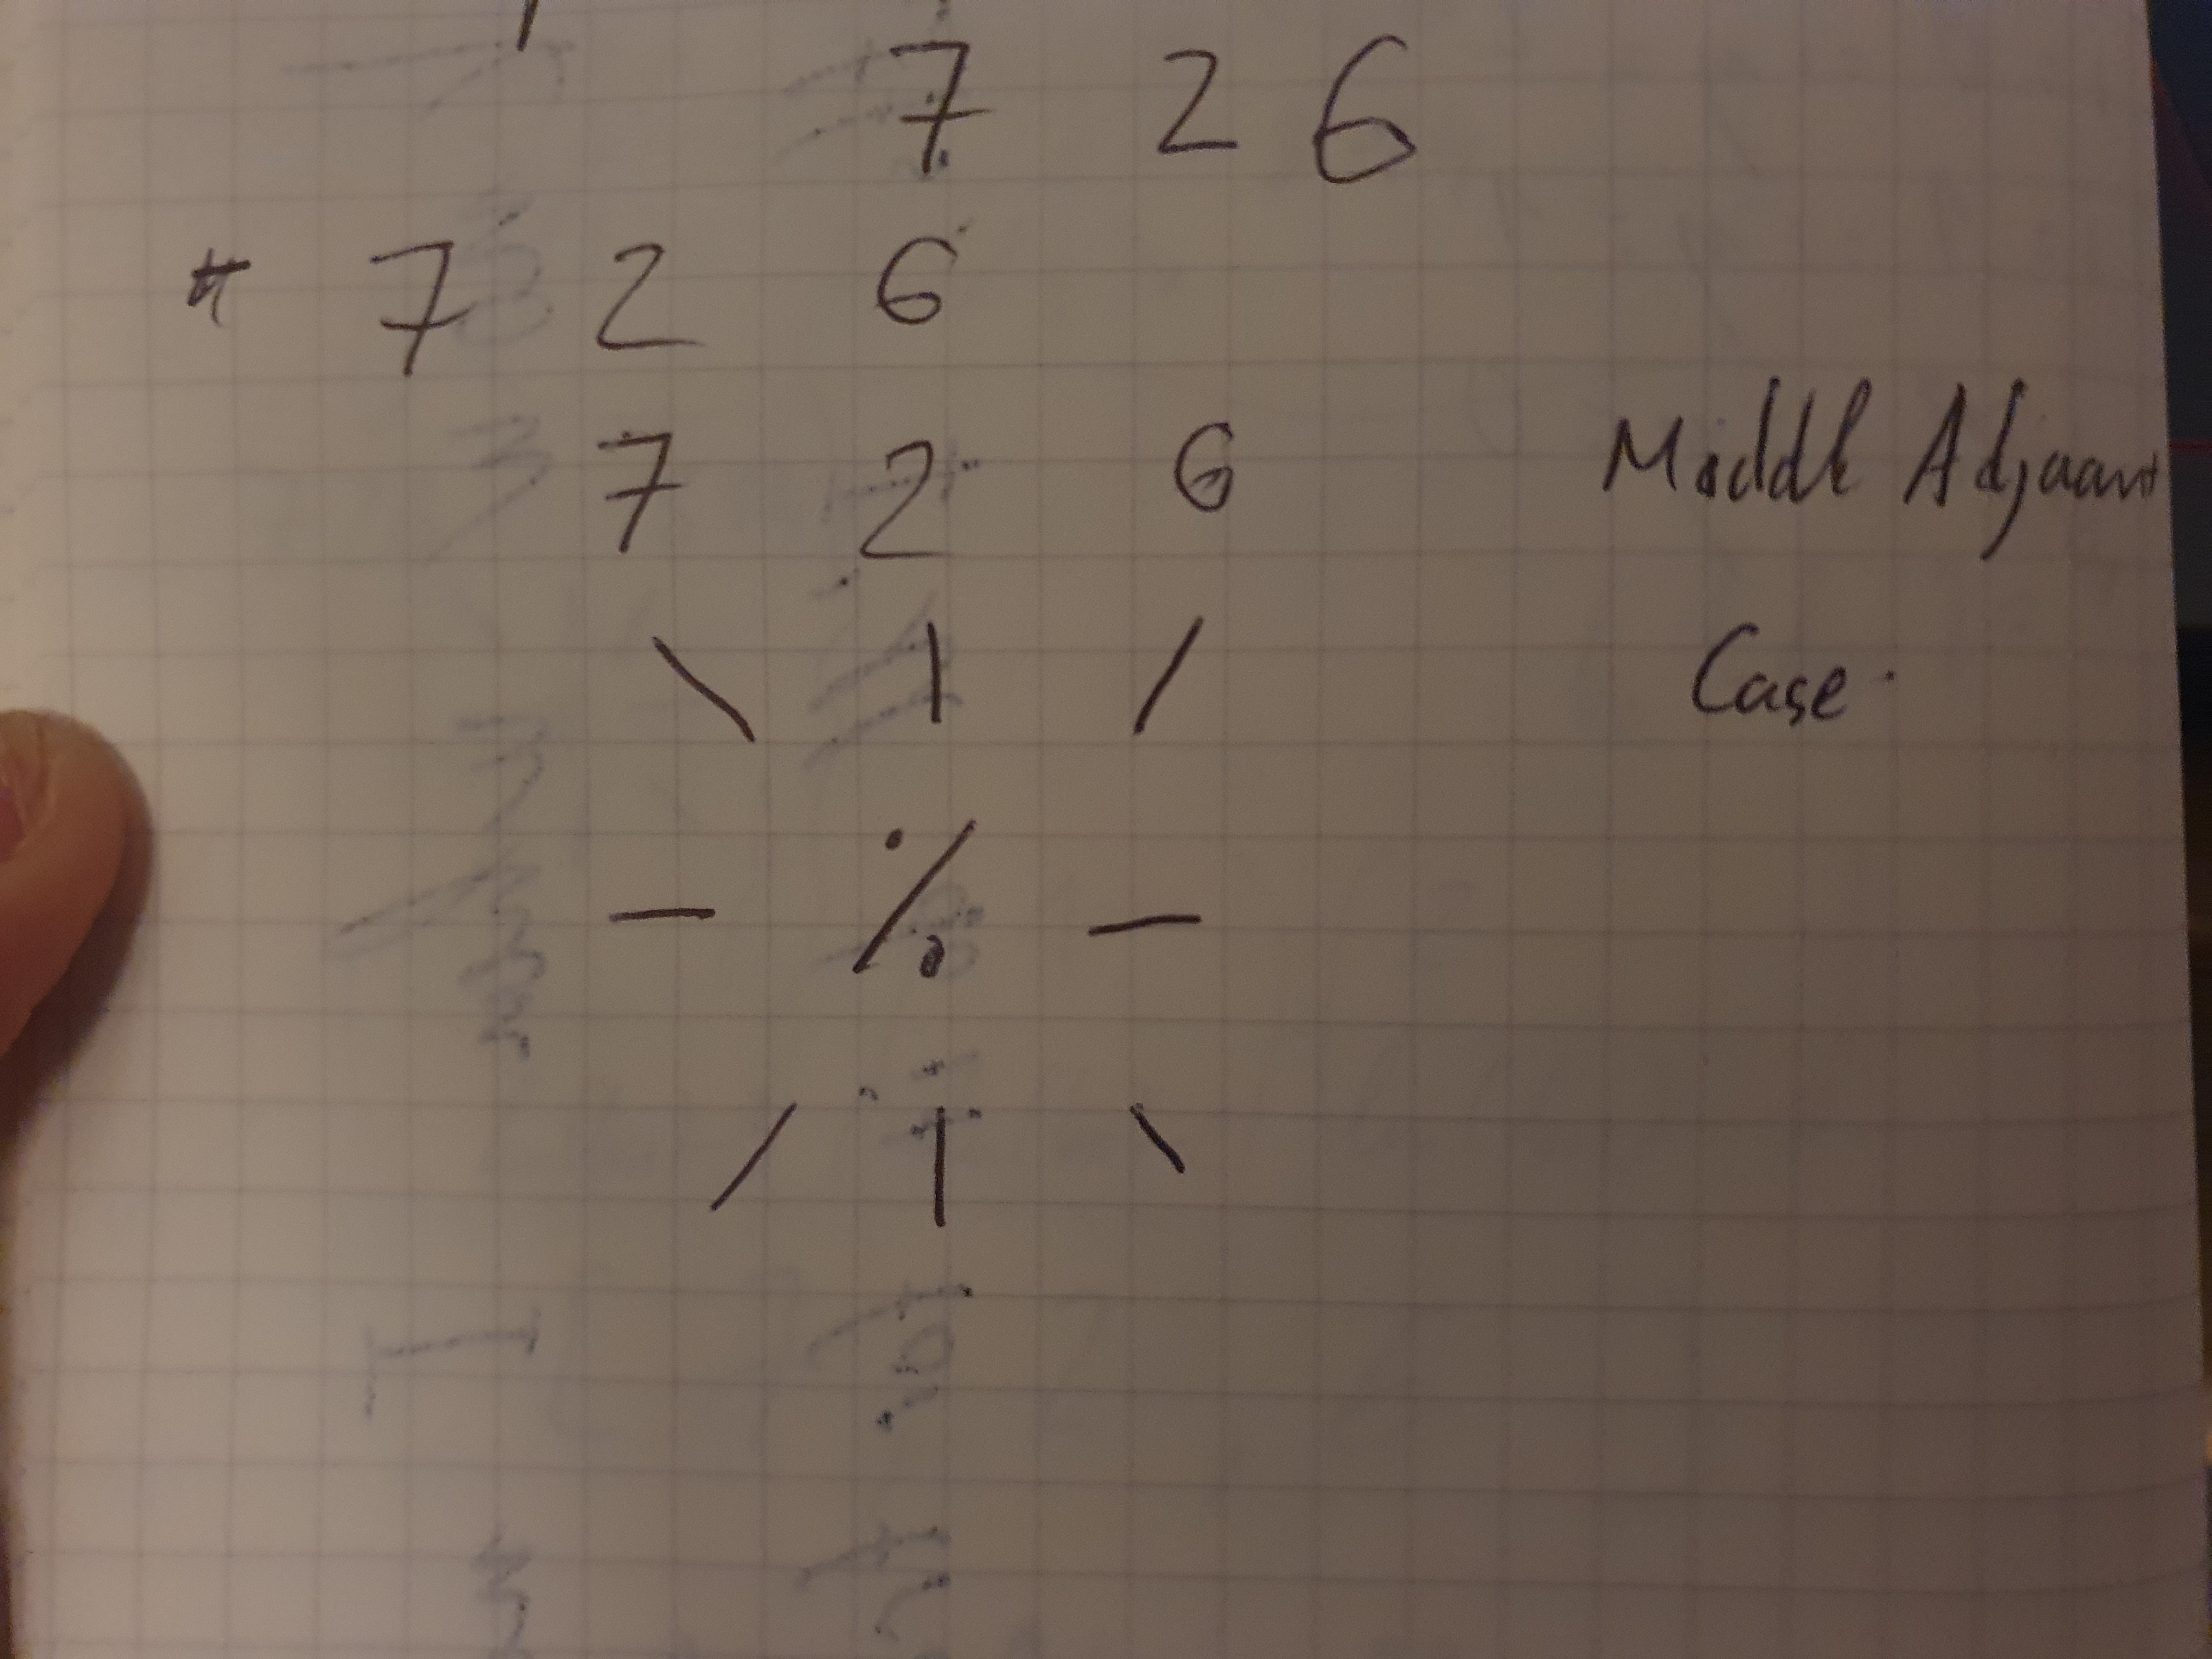 7 2 6
* 7 2 6
7 2 6 Middle Adjacent
\ | / Case.
— % —
/ | \